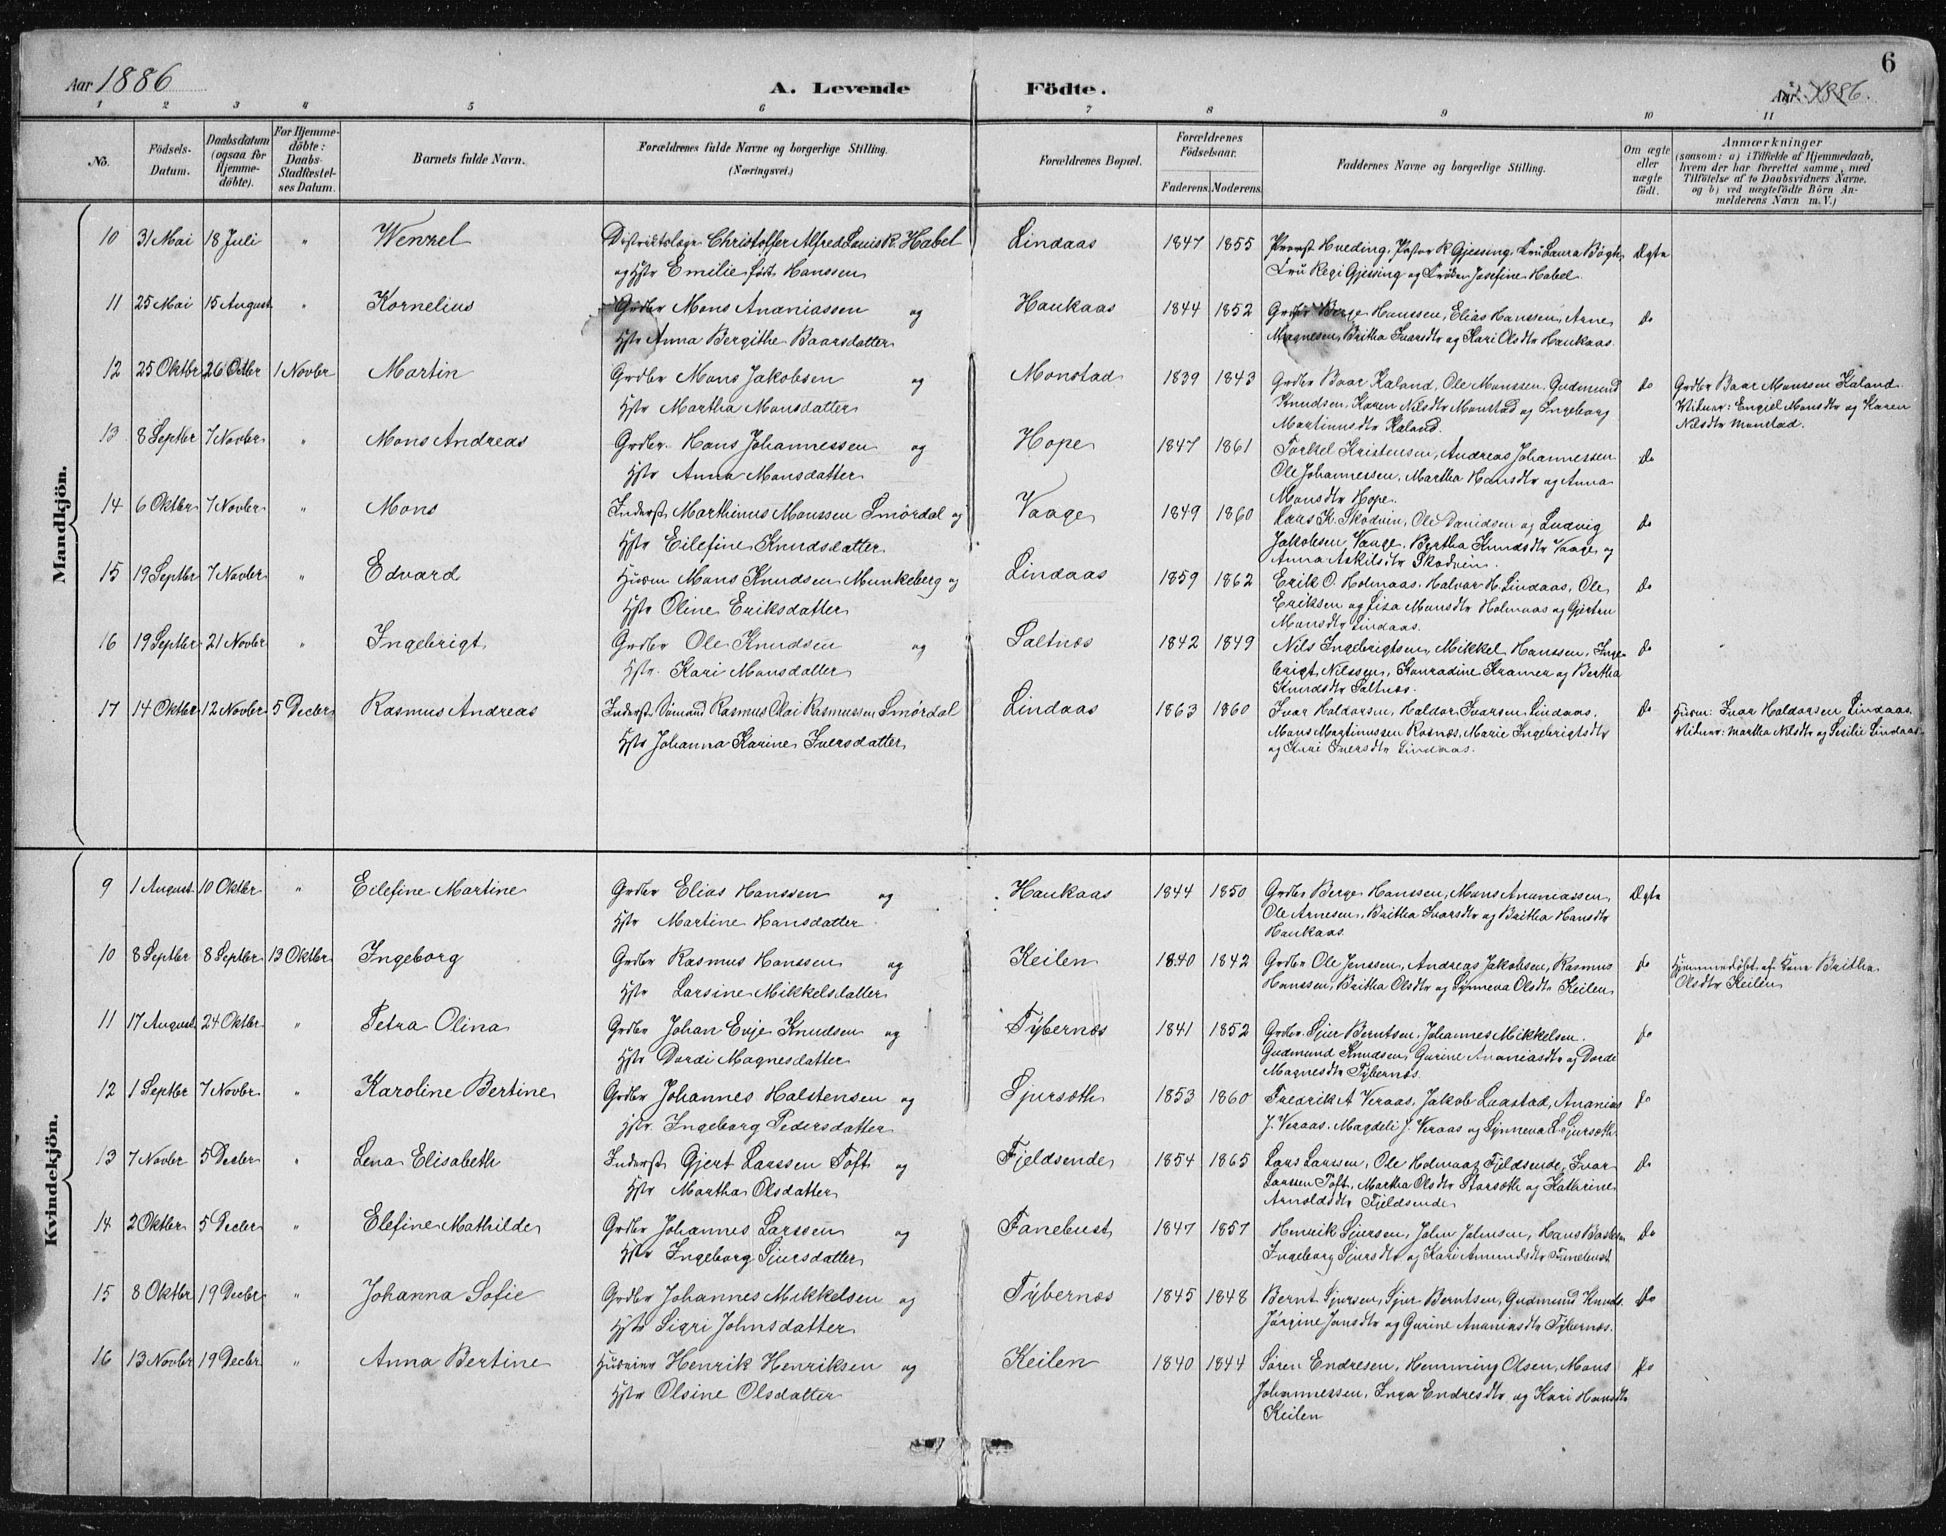 6
Aar 1886
A. Levende Födte.
Aar 1886.
1 2 3 4 5 6 7 8 9 10 11
No.
Födsels-Datum.
Daabsdatum (ogsaa for Hjemmedöbte).
For Hjemmedöbte: Daabs-Stadfæstelses Datum.
Barnets fulde Navn.
Forældrenes fulde Navne og borgerlige Stilling.
(Næringsvei.)
Forældrenes Bopæl.
Forældrenes Födselsaar.
Faderens. Moderens.
Faddernes Navne og borgerlige Stilling.
Om ægte eller uægte födt.
Anmærkninger
(saasom: a) i Tilfælde af Hjemmedaab,
hvem der har forrettet samme, med
Tilföielse af to Daabsvidners Navne,
og b) ved uægtefödte Börn Anmelderens Navn m. V.)
Mandkjön.
10 31 Mai 18 Juli " Wenzel Distriktslæge Christoffer Alfred Louis K. Habel Lindaas 1847 1855 Provst Hveding, Pastor R Gjessing, Fru Laura Bøgh, Ægte
og Hstr Emilie født Hanssen Fru Regi Gjessing og Frøken Josefine Habel.
11 25 Mai 15 August " Kornelius Grdbr Mons Ananiassen og Haukaas 1844 1852 Grdbr Berge Hanssen, Elias Hanssen, Arne Do
Hstr Anna Bergithe Baarsdatter Magnesen, Britha Ivarsdtr og Kari Olsdtr Haukaas.
12 25 Oktbr 26 Octbr 1 Novbr Martin Grdbr Mons Jakobsen og Monstad 1839 1843 Grdbr Baar Kaland, Ole Monssen, Gudmund Do Grdbr Baar Monssen Kaland.
Hstr Martha Monsdatter Knudsen, Karen Nilsdtr Monstad og Ingeborg Vidner: Engiel Monsdtr og Karen
Martinusdtr Kaland. Nilsdtr Monstad.
13 8 Septbr 7 Novbr " Mons Andreas Grdbr Hans Johannessen og Hope 1847 1861 Torkel Kristensen, Andreas Johannessen Do
Hstr Anna Monsdatter Ole Johannessen, Martha Hansdtr og Anna
Monsdtr Hope.
14 6 Oktbr 7 Novbr " Mons Inderst Marthinus Monssen Smørdal og Vaage 1849 1860 Lars K. Skodvin, Ole Davidsen og Ludvig Do
Hstr Eilefine Knudsdatter Jakobsen Vaage, Bertha Knudsdtr Vaage og
Anna Askilsdtr Skodvin.
15 19 Septbr 7 Novbr " Edvard Husm Mons Knudsen Munkeberg og Lindaas 1859 1862 Erik O. Holmaas, Halvor H. Lindaas, Ole Do
Hstr Oline Eriksdatter Eriksen og Lisa Monsdtr Holmaas og Gjertru
Monsdtr Lindaas.
16 19 Septbr 21 Novbr " Ingebrigt Grdbr Ole Knudsen og Saltnæs 1842 1849 Nils Ingebrigtsen, Mikkel Hanssen, Inge- Do
Hstr Kari Monsdatter brigt Nilssen, Konradine Kramer og Bertha
Knudsdtr Saltnæs.
17 14 Oktbr 12 Novbr 5 Decbr Rasmus Andreas Inderst Sømand Rasmus Olai Rasmussen Smørdal Lindaas 1863 1860 Ivar Haldorsen, Haldor Ivarsen Lindaas, Do Husm: Ivar Haldorsen Lindaas
Hstr Johanna Karine Iversdatter Mons Martinussen Rosnæs, Marie Ingebrigtsdtr Vidner: Martha Nilsdtr og Sesilie Lindaas.
og Kari Iversdtr Lindaas.
Kvindekjön.
9 1 August 10 Oktbr " Eilefine Martine Grdbr Elias Hanssen og Haukaas 1844 1850 Grdbr Berge Hanssen, Mons Ananiassen, Ægte
Hstr Martine Hansdatter Ole Arnesen, Britha Ivarsdtr og Britha Hansdtr
Haukaas.
10 8 Septbr 8 Septbr 13 Oktbr Ingeborg Grdbr Rasmus Hanssen og Keilen 1840 1842 Grdbr Ole Jenssen, Andreas Jakobsen, Rasmus Do Hjemmedøbt af Kone Britha
Hstr Larsine Mikkelsdatter Hanssen, Britha Olsdtr og Synneva Olsdtr Keilen Olsdtr Keilen
11 17 August 24 Oktbr " Petra Olina Grdbr Johan Evje Knudsen og Tybernæs 1841 1852 Grdbr Sjur Berntsen, Johannes Mikkelsen. Do
Hstr Dordi Magnesdatter Gudmund Knudsen, Gurine Ananiasdtr og Dorde
Magnesdtr Tybernæs.
12 1 Septbr 7 Novbr " Karoline Bertine Grdbr Johannes Halstensen og Sjursæth 1853 1860 Fredrik A Veraas, Jakob Laastad, Ananias Do
Hstr Ingeborg Pedersdatter J. Veraas, Magdeli J. Veraas og Synneva L. Sjursæth
13 7 Novbr 5 Decbr " Lena Elisabeth Inderst Gjert Larssen Toft og Fjeldsende 1854 1865 Lars Larssen, Ole Holmaas Fjeldsende, Ivar Do
Hstr Martha Olsdatter Larssen Toft, Martha Olsdtr Storsæth og Kathrine
Arnoldsdtr Fjeldsende
14 2 Oktbr 5 Decbr " Elefine Mathilde Grdbr Johannes Larssen og Fanebust 1847 1857 Henrik Sjursen, John Johnsen, Hans Do
Hstr Ingeborg Sjursdatter Ingeborg Sjursdtr og Kari Amundsdtr Fanebust
15 8 Oktbr 19 Decbr " Johanna Sofie Grdbr Johannes Mikkelsen og Tybernæs 1845 1848 Bernt Sjursen, Sjur Berntsen, Gudmund Knuds. Do
Hstr Sigri Johnsdatter Jørgine Jonsdtr og Gurine Ananiasdtr Tybernæs.
16 13 Novbr 19 Decbr " Anna Bertine Henrik Henriksen og Keilen 1840 1844 Søren Endresen, Hemming Olsen, Mons Do
Hstr Olsine Olsdatter Johannessen, Inga Endresdtr og Kari Hansdtr
Keilen